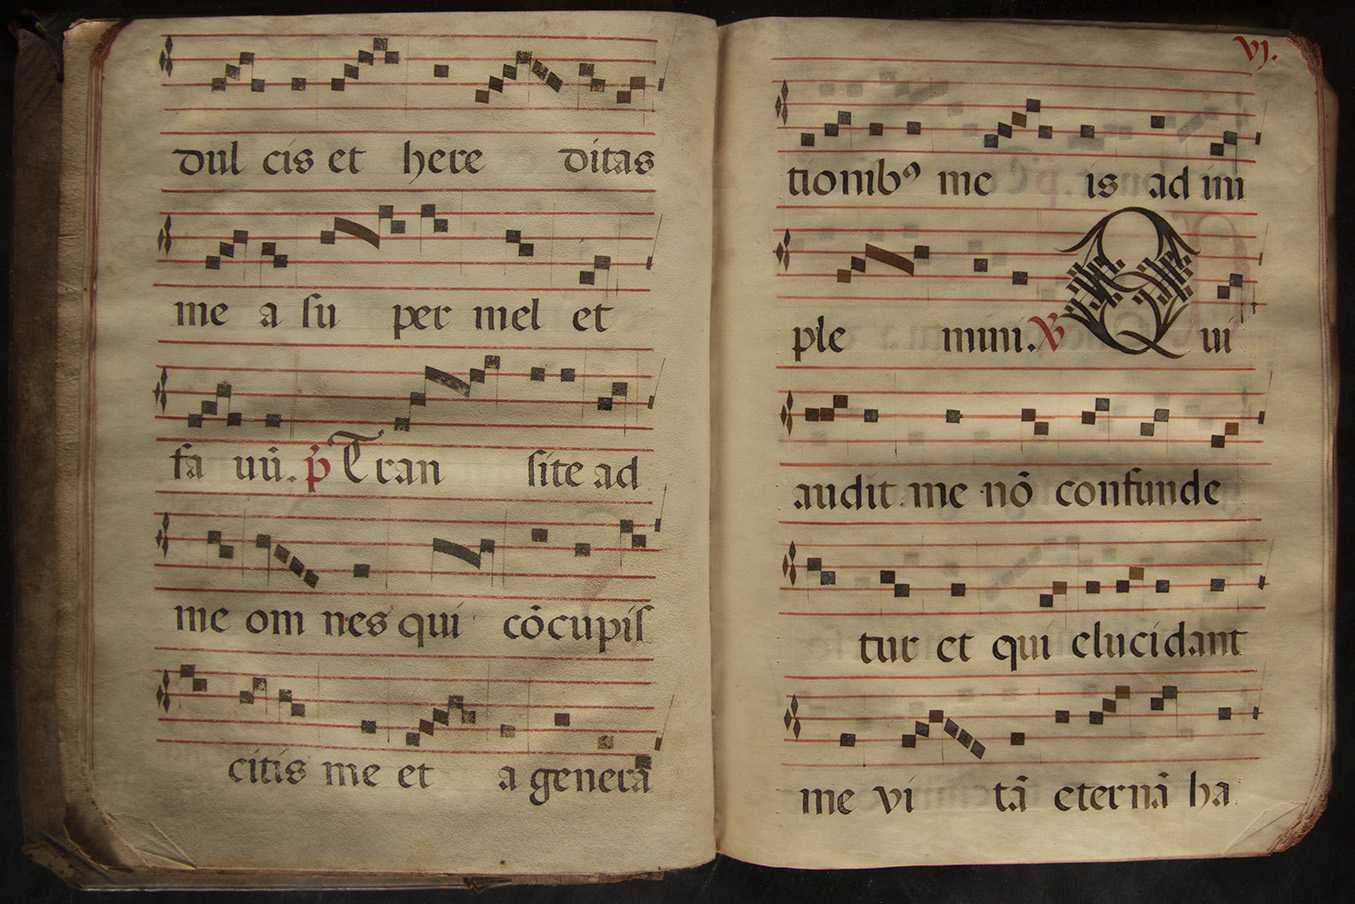 dul cis et here ditas
me a su per mel et
fa uū. p̄ Tran site ad
me om nes qui cōcupis
citis me et a genera
vj.
tionibꝰ me is ad im
ple mini. ℣ Qui
audit me nō confunde
tur et qui elucidant
me vi tā eternā ha